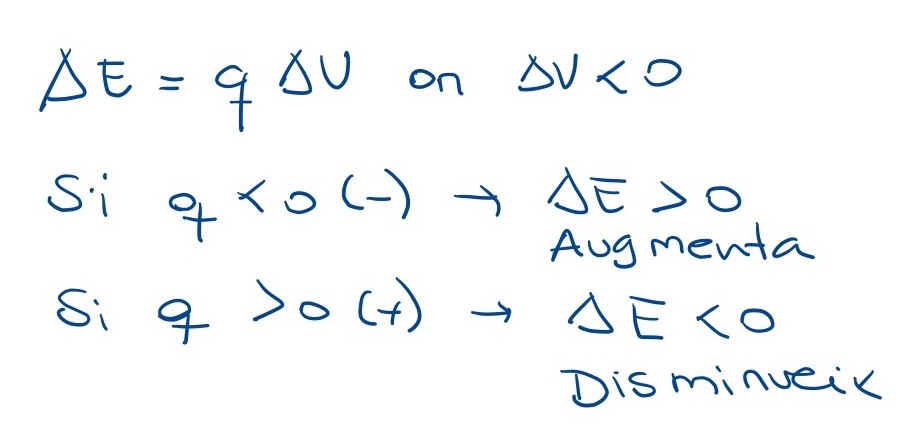 ΔE = q ΔU on ΔV < 0
Si q < 0 (-) → ΔE > 0
Augmenta
Si q > 0 (+) → ΔE < 0
Disminueix